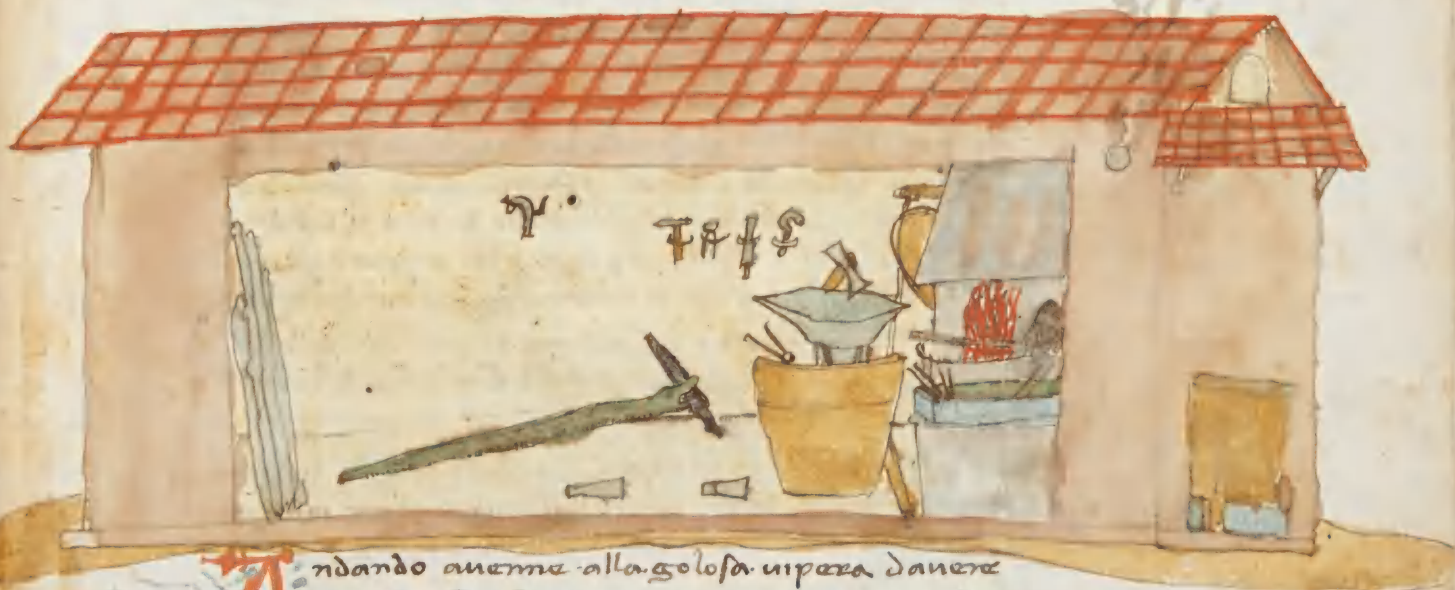 Andando auenne alla golosa uipera dauere